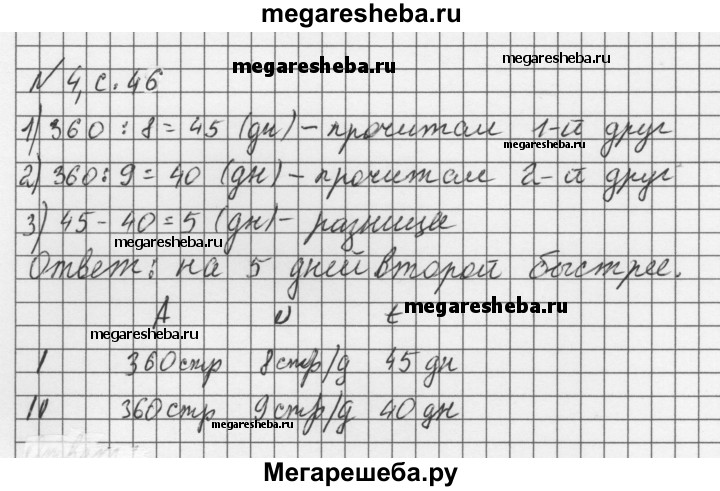 megaresheba.ru
№ 4, с. 46
megaresheba.ru
megaresheba.ru
1) 360 : 8 = 45 (дн) - прочитал 1-й друг
megaresheba.ru
2) 360 : 9 = 40 (дн) - прочитал 2-й друг
3) 45 - 40 = 5 (дн) - разница
megaresheba.ru
Ответ: на 5 дней второй быстрее.
A υ t
megaresheba.ru
megaresheba.ru
I 360 стр 8 стр/д 45 дн
II 360 стр 9 стр/д 40 дн
megaresheba.ru
Мегарешеба.ру